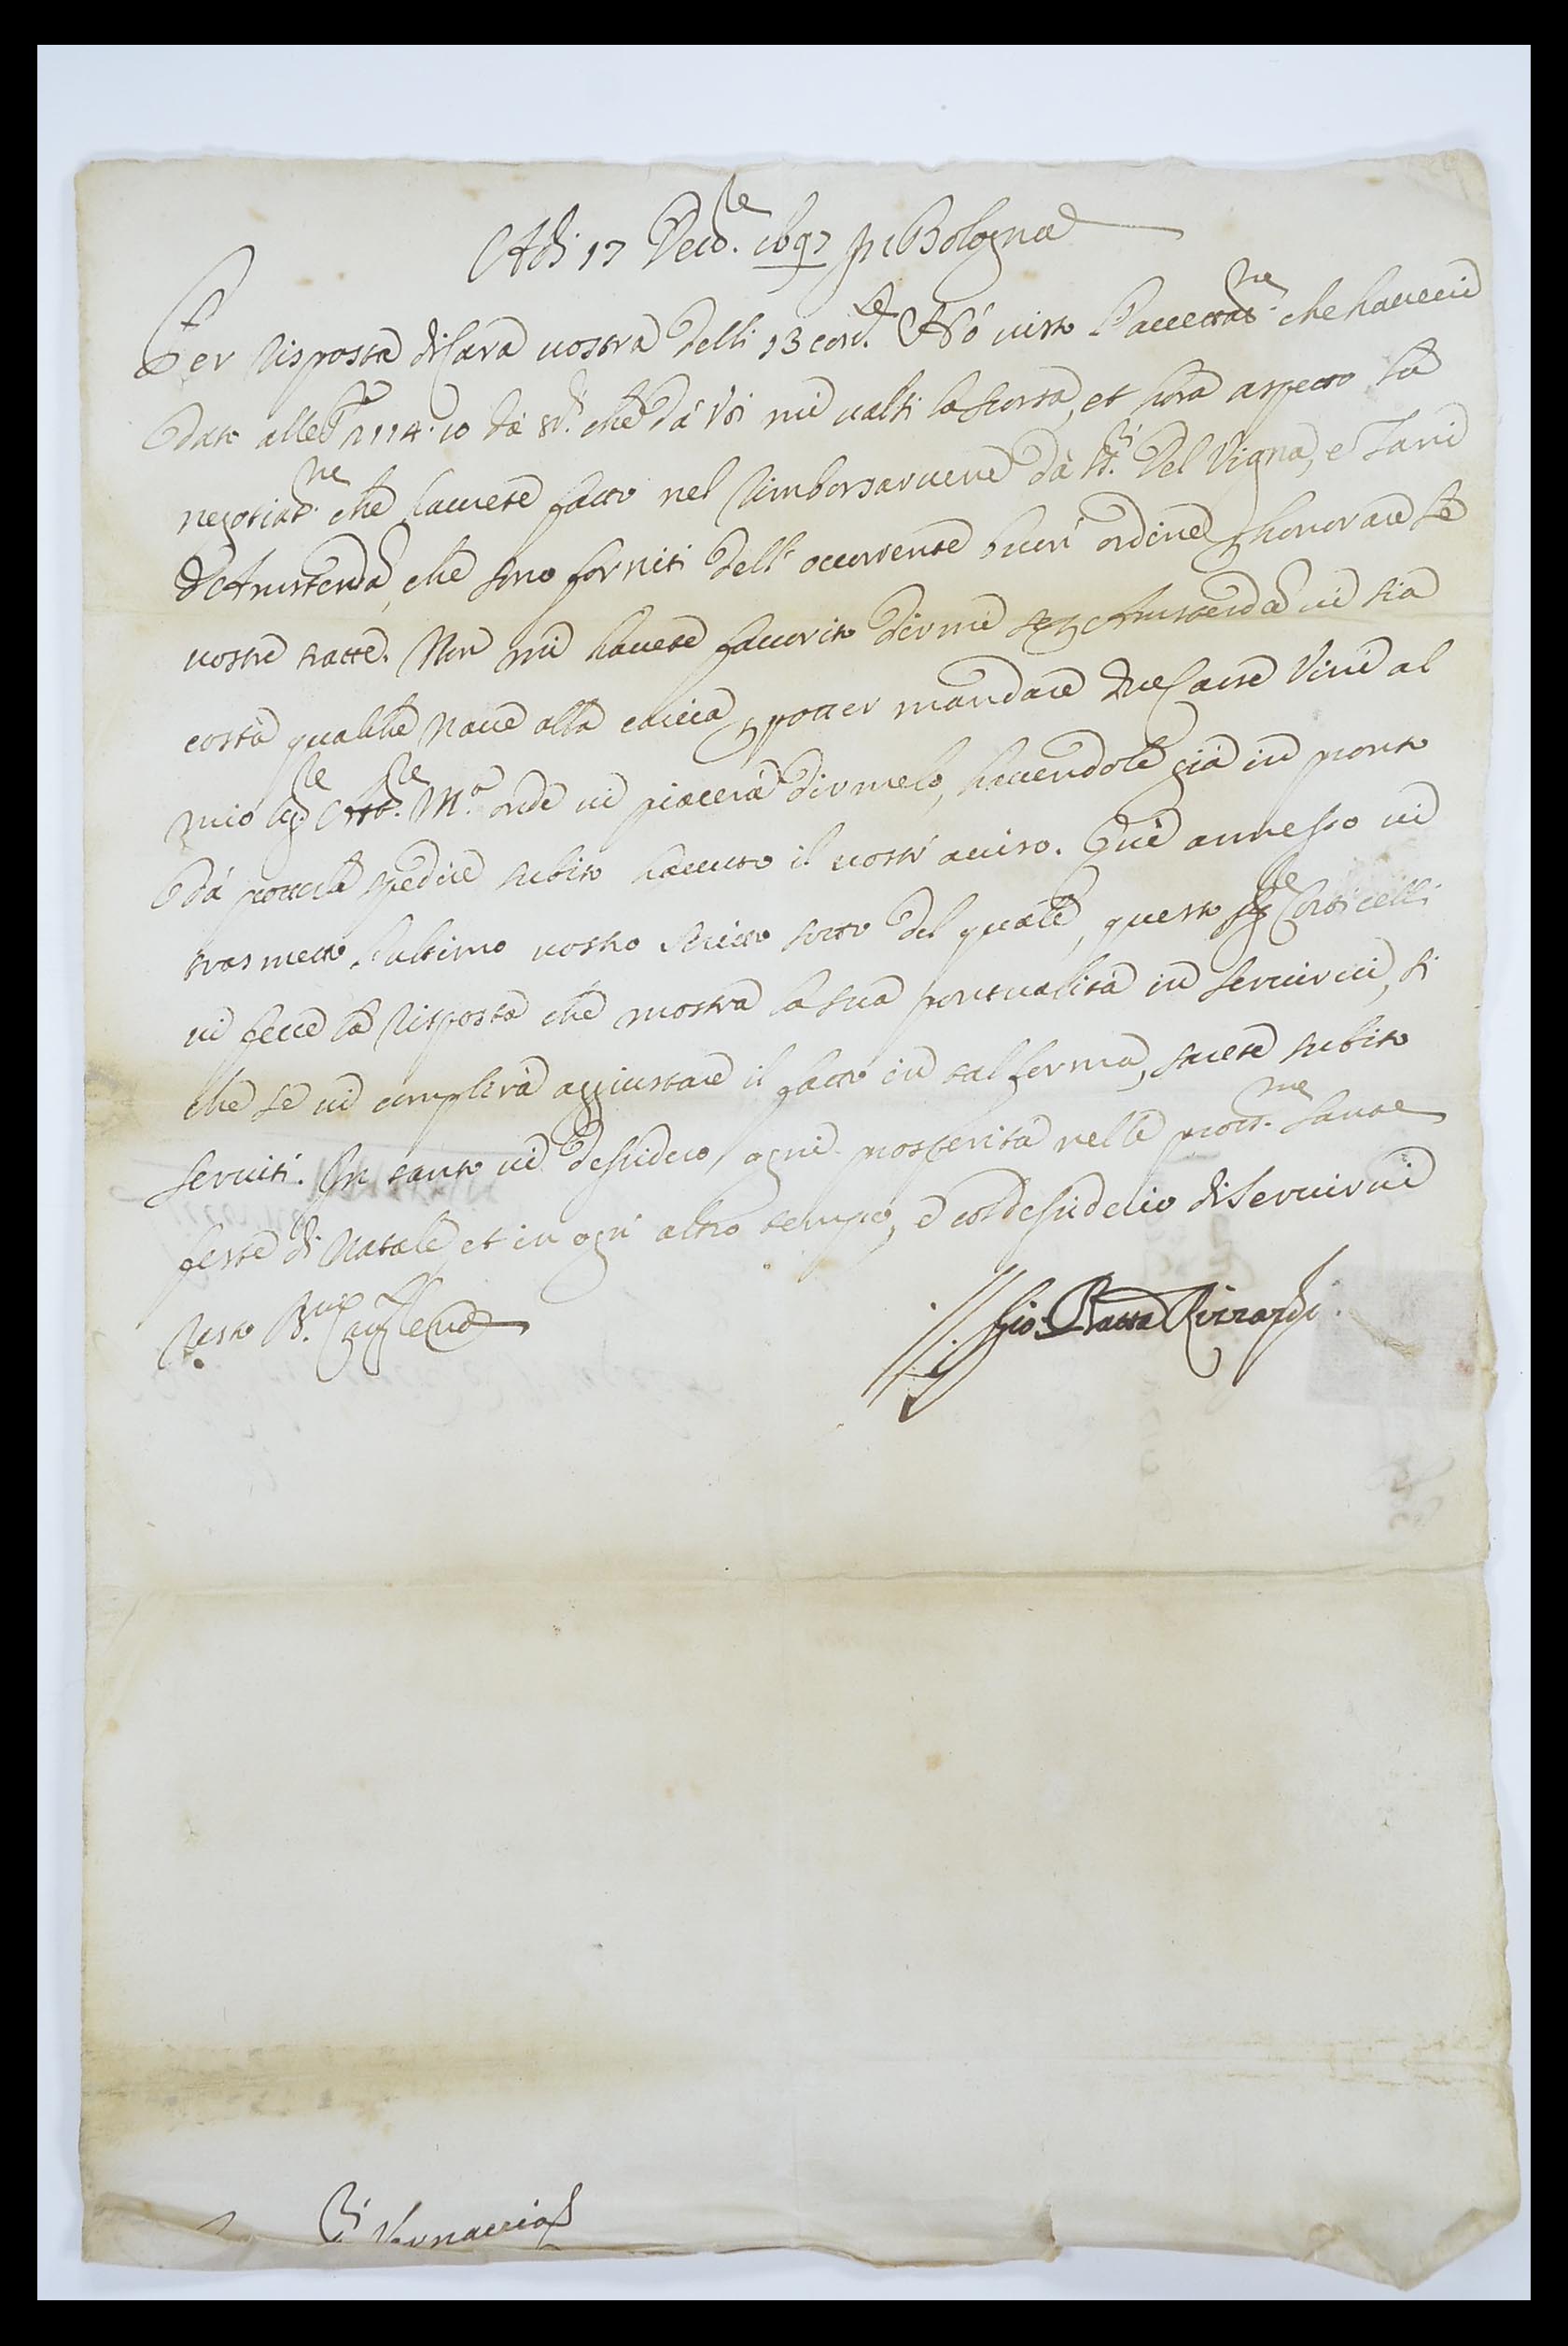 Adi 17 Decb.re 1697 In Bologna
Per risposta di cara vostra delli 13 corr.te Hò visto l'accettat.ne che havevi
dato alle 2114.10 che dà Voi mi valsi la scorsa, et hora aspetto la
negotiat.ne che havvete fatto nel rimborsarvene dà SS.ri Del Vigna, e Tani
d'Amsterdā, che sono forniti dell' occorrente buon' ordine p honorare le
vostre tratte. Non mi havete favorito dirmi se p Amsterdā vi sia
costà qualche nave alla carica p potter mandare due casse Vini al
mio M.o onde vi piacerà dirmelo, havendole già in pronto
dà potterle spedire subito havuto il vostr' aviso. Quì annesso vi
trasmetto l'ultimo vostro scritto sotto del quale, questo Sig.re Corticelli
vi fece la risposta che mostra la sua pontualità in servirvi, si
che se vi complirà aggiustare il fatto in tal forma, sarete subito
serviti. In tanto vi desidero ogni prosperità nelle pross.me sante
feste di Natale, et in ogn' altro tempo, e col desiderio di servirvi
Resto
Gio: Batta Rizzardi
S.ri Vernaccia